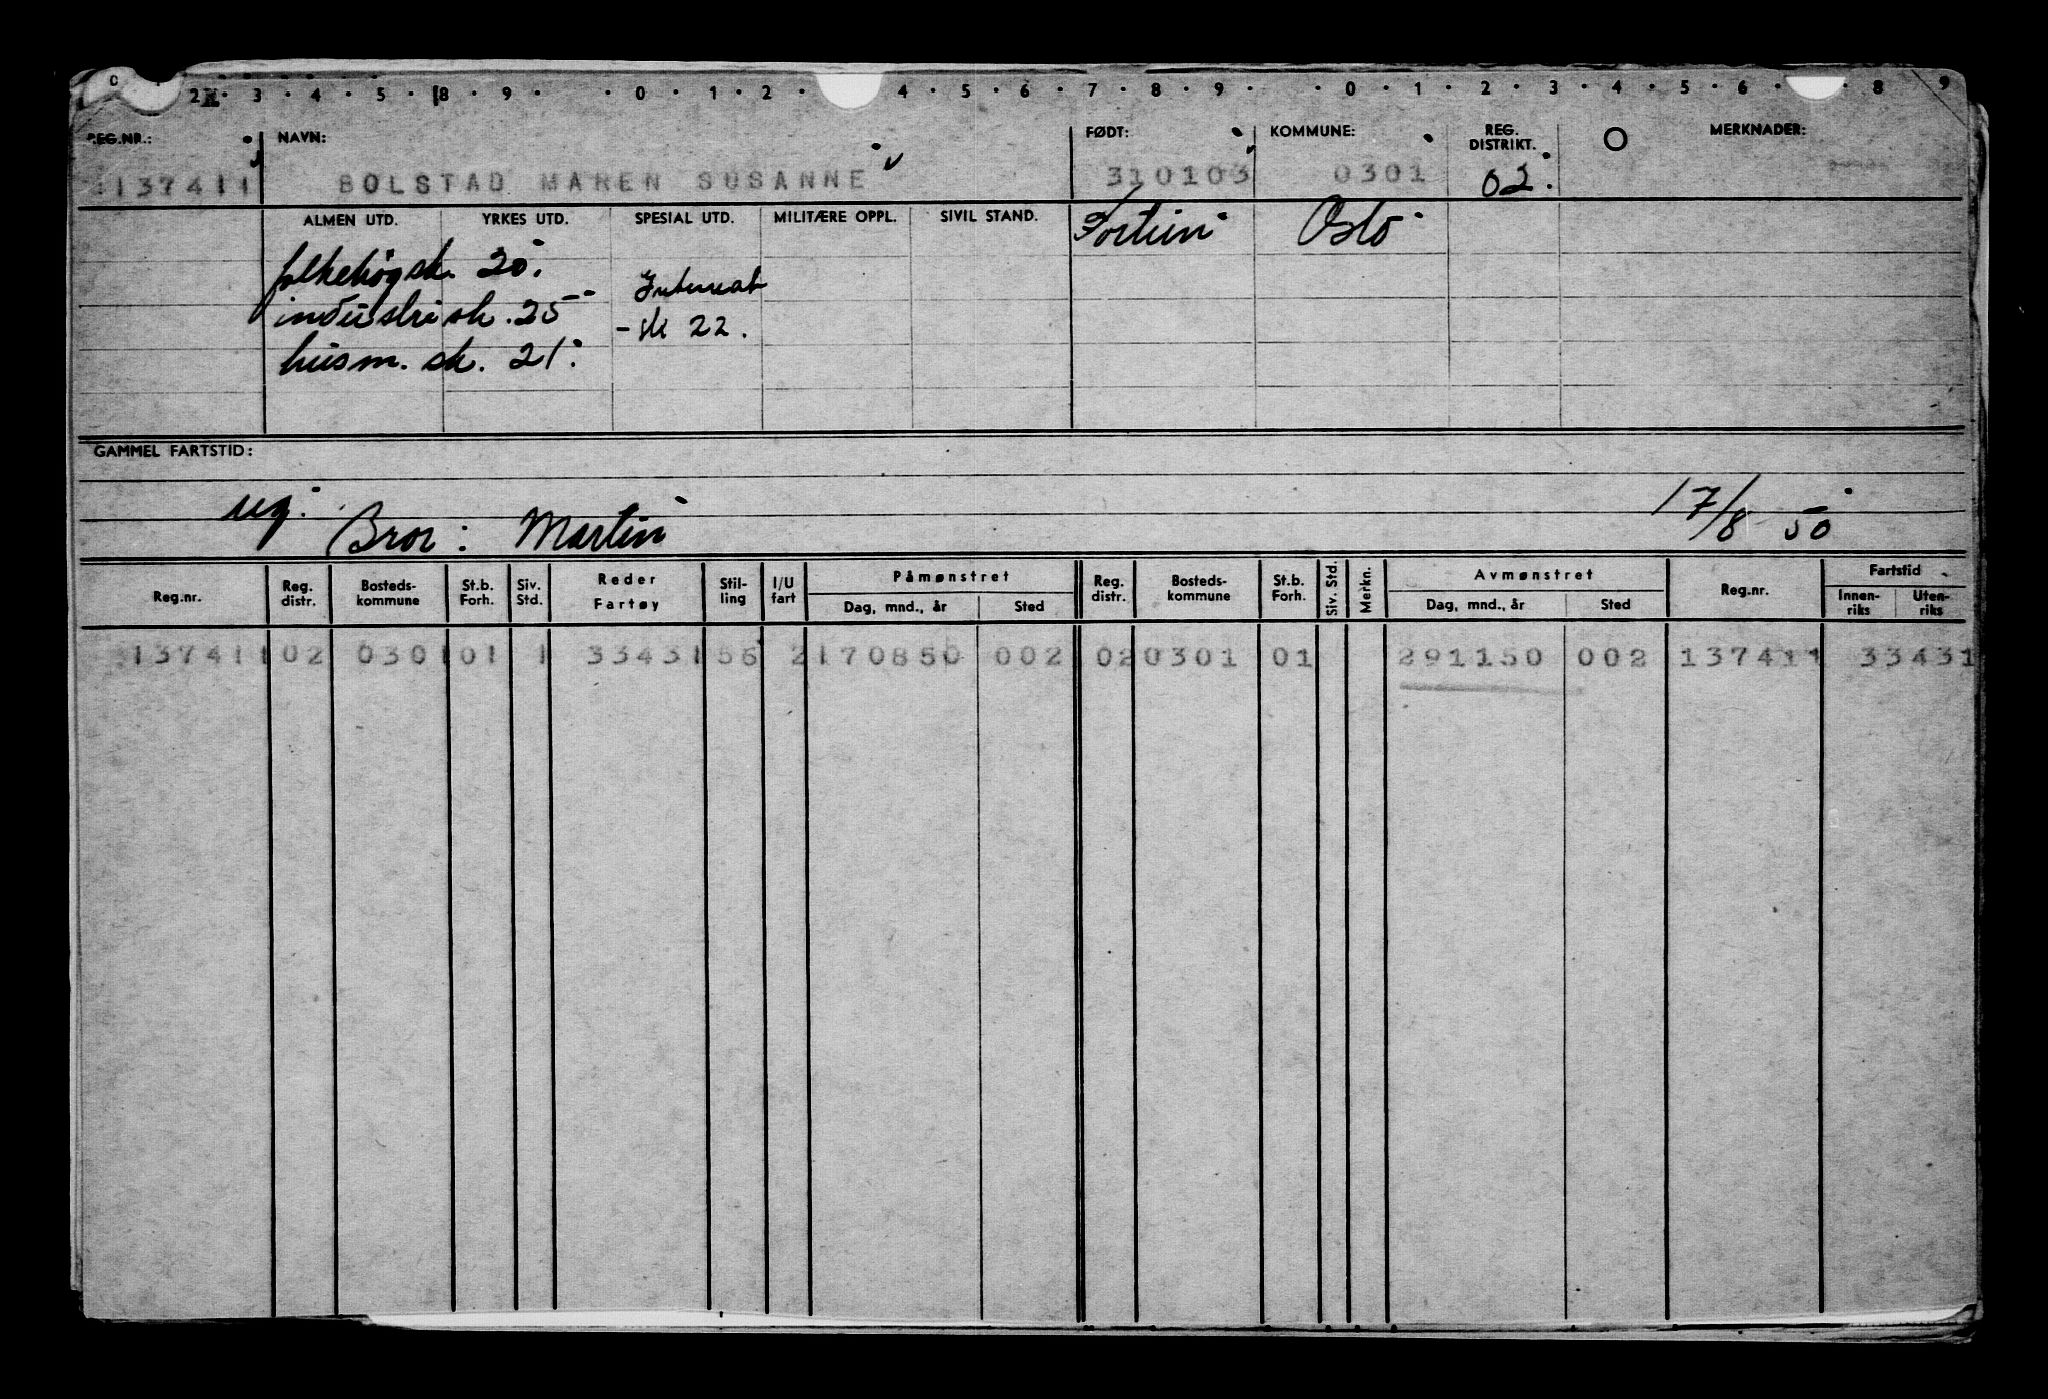 0 2 3 4 5 8 9 0 1 2 4 5 6 7 8 9 0 1 2 3 4 5 6 8 9
REG.NR.: NAVN: FØDT: KOMMUNE: REG. DISTRIKT. MERKNADER:
137411 BOLSTAD MAREN SUSANNE 310103 0301 02.
ALMEN UTD. YRKES UTD. SPESIAL UTD. MILITÆRE OPPL. SIVIL STAND. Fortun Oslo
folkehøgsk. 20.
industrisk. 25 Internat
- sk 22.
husm. sk. 21.
GAMMEL FARTSTID:
ug. Bror: Martin 17/8 50
Reg.nr. Reg. distr. Bosteds-kommune St.b. Forh. Siv. Std. Reder Fartøy Stil-ling I/U fart Påmønstret Dag, mnd., år Sted Reg. distr. Bosteds-kommune St.b. Forh. Siv. Std. Merkn. Avmønstret Dag, mnd., år Sted Reg.nr. Fartstid Innen-riks Uten-riks
137411 02 0301 01 1 33431 56 2 170850 002 02 0301 01 291150 002 137411 33431